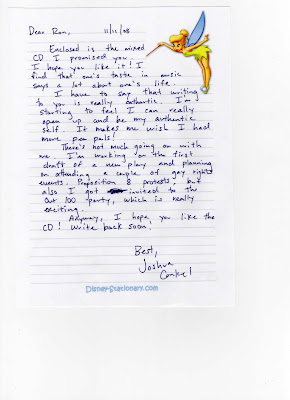 Dear Ron, 11/11/08
Enclosed is the mixed
CD I promised you.
I hope you like it! I
find that one's taste in music
says a lot about one's life.
I have to say that writing
to you is really cathartic. I'm
starting to feel I can really
open up and be my authentic
self. It makes me wish I had
more pen pals!
There's not much going on with
me. I'm working on the first
draft of a new play and planning
on attending a couple of gay rights
events. Proposition 8 protests, but
also I got invited to the
Out 100 party, which is really
exciting.
Anyway, I hope you like the
CD! Write back soon.
Best,
Joshua
Conkel
Disney-Stationary.com